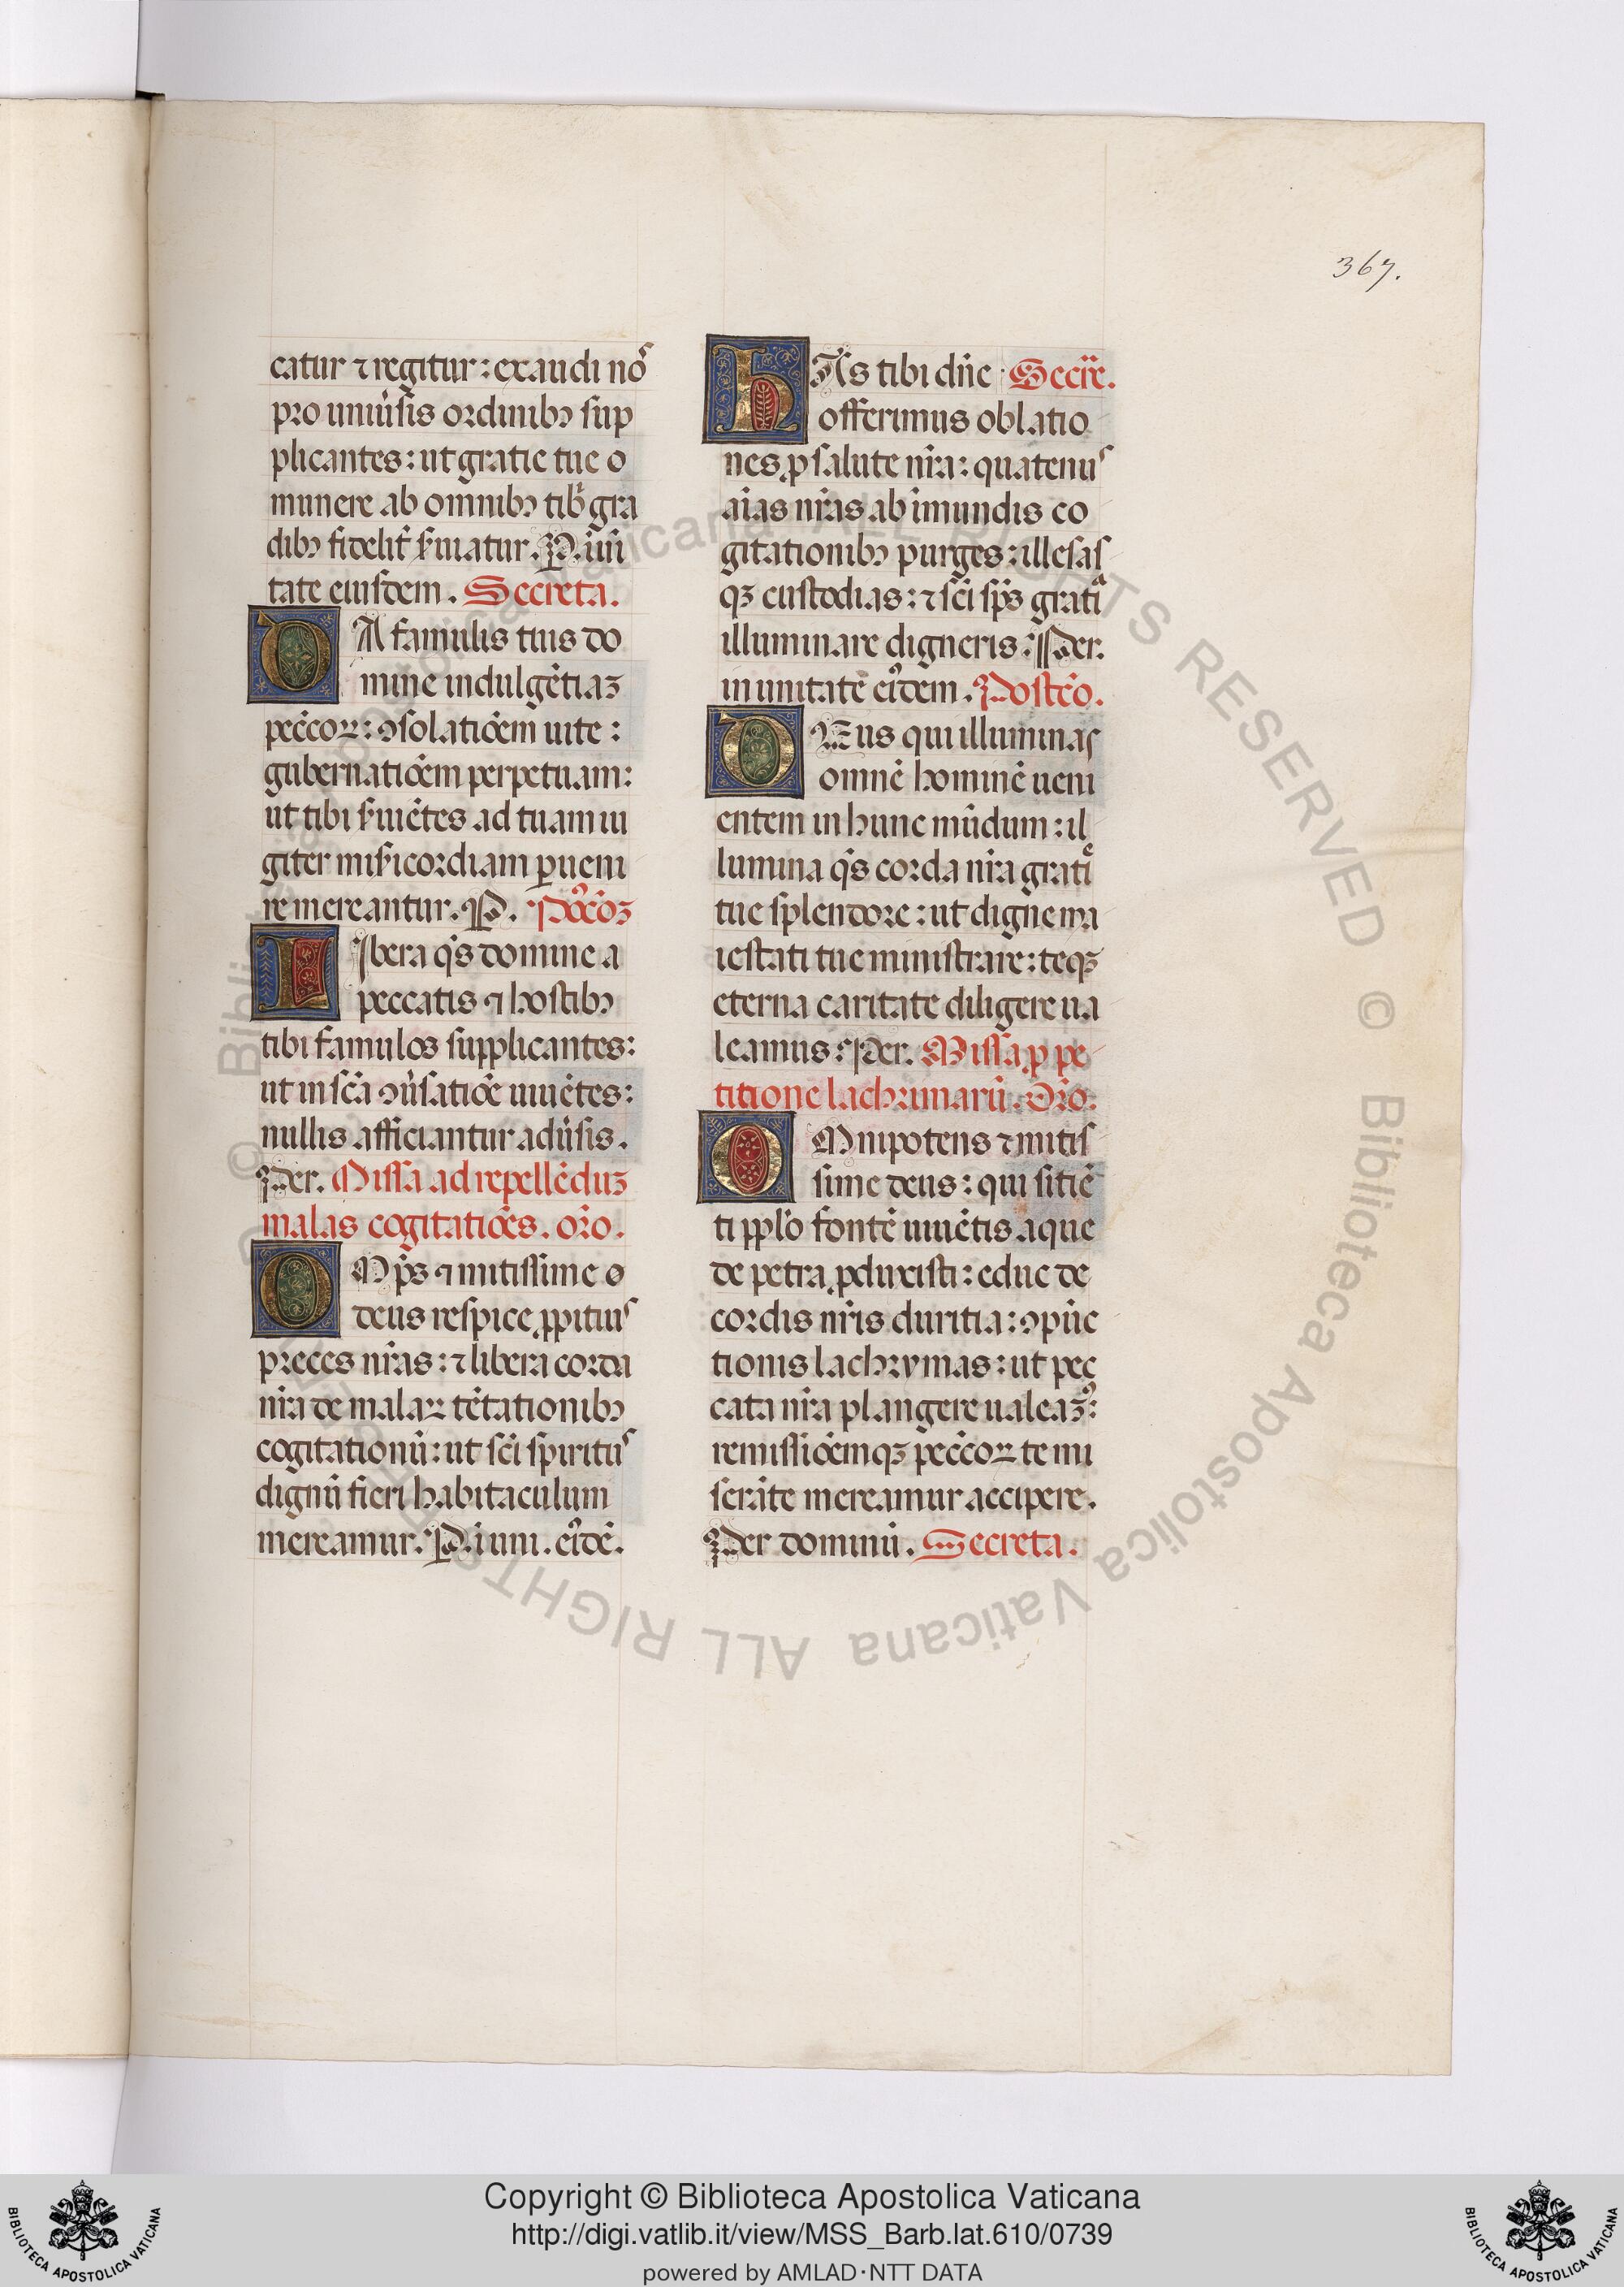 367.
catur ⁊ regitur: exaudi noˢ
pro uniũsis ordinibꝰ sup
plicantes: ut gratie tue o
munere ab omnibꝰ tibi gra
dibꝰ fidelit̃ s̃uiatur. P. i uni
tate eiusdem. Secreta.
DA famulis tuis do
mine indulgẽtiaꝫ
pec̃coꝝ: ꝯsolatiõem uite:
gubernatiõem perpetuam:
ut tibi s̃uiẽtes ad tuam iu
giter mis̃icordiam ꝑueni
re mereantur. P. Pos̃cõꝫ
LIbera q̃s domine a
peccatis ⁊ hostibꝰ
tibi famulos supplicantes:
ut in sc̃a ꝯũsatiõe uiuẽtes:
nullis afficiantur adũsis.
Per. Missa ad repellẽduꝫ
malas cogitatiões. orõ.
OMp̃s ⁊ mitissime o
deus respice ꝓpitiuˢ
preces nr̃as: ⁊ libera corda
nr̃a de malaꝝ tẽtationibꝰ
cogitationũ: ut sc̃i spirituˢ
dignũ fieri habitaculum
mereamur. P. i uni. eiʼdẽ.
HAs tibi dñe Secre̅.
offerimus oblatio
nes ꝓ salute nr̃a: quatenuˢ
aĩas nr̃as ab imundis co
gitationibꝰ purges: illesas
qꝫ custodias: ⁊ sc̃i sp̃s gratiᵃ
illuminare digneris: Per.
in unitate eiʼdem. Postcõ.
DEus qui illuminas
omnẽ hominẽ ueni
entem in hunc mũdum: il
lumina q̃s corda nr̃a gratiᵉ
tue splendore: ut digne ma
iestati tue ministrare: teqꝫ
eterna caritate diligere ua
leamus: Per. Missa ꝓ pe
titione lachrimarũ. Orõ.
OMnipotens ⁊ mitis
sime deus: qui sitiẽ
ti pplõ fontẽ uiuẽtis aque
de petra ꝓduxisti: educ de
cordis nr̃is duritia: ꝯpũc
tionis lachrymas: ut pec
cata nr̃a plangere ualeaꝫʼ:
remissiõemqꝫ pec̃coꝝ te mi
serãte mereamur accipere.
Per dominũ. Secreta.
Copyright © Biblioteca Apostolica Vaticana
http://digi.vatlib.it/view/MSS_Barb.lat.610/0739
powered by AMLAD·NTT DATA
BIBLIOTECA APOSTOLICA VATICANA
BIBLIOTECA APOSTOLICA VATICANA
© Biblioteca Apostolica Vaticana ALL RIGHTS RESERVED © Biblioteca Apostolica Vaticana ALL RIGHTS